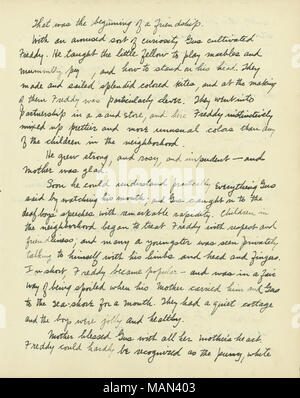 That was the beginning of a friendship.
With an amused sort of curiosity Gus cultivated
Freddy. He taught the little fellow to play marbles and
mummelty peg, and how to stand on his head. They
made and sailed splendid colored kites, and at the making
of them Freddy was particularly clever. They went into
partnership in a sand store, and here Freddy instinctively
mixed up prettier and more unusual colors than any
of the children in the neighborhood.
He grew strong, and rosy, and independent — and
Mother was glad.
Soon he could understand practically everything Gus
said by watching his mouth; and Gus caught on to the
deaf boy's speeches with remarkable rapidity. Children in
the neighborhood began to treat Freddy with respect and
friendliness, and many a youngster was seen privately
talking to himself with his limbs and head and fingers.
In short Freddy became popular — and was in a fair
way of being spoiled when his Mother carried him and Gus
to the sea-shore for a month. They had a quiet cottage
and the boys were jolly and healthy.
Mother blessed Gus with all her mother's heart.
Freddy could hardly be recognized as the puny, white
alamy
Image ID: MAN403
www.alamy.com